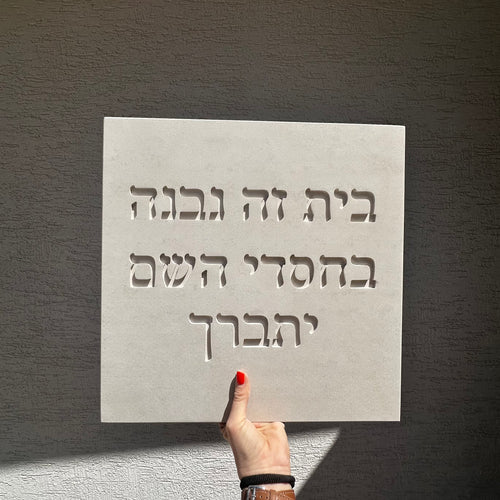 בית זה נבנה
בחסדי השם
יתברך